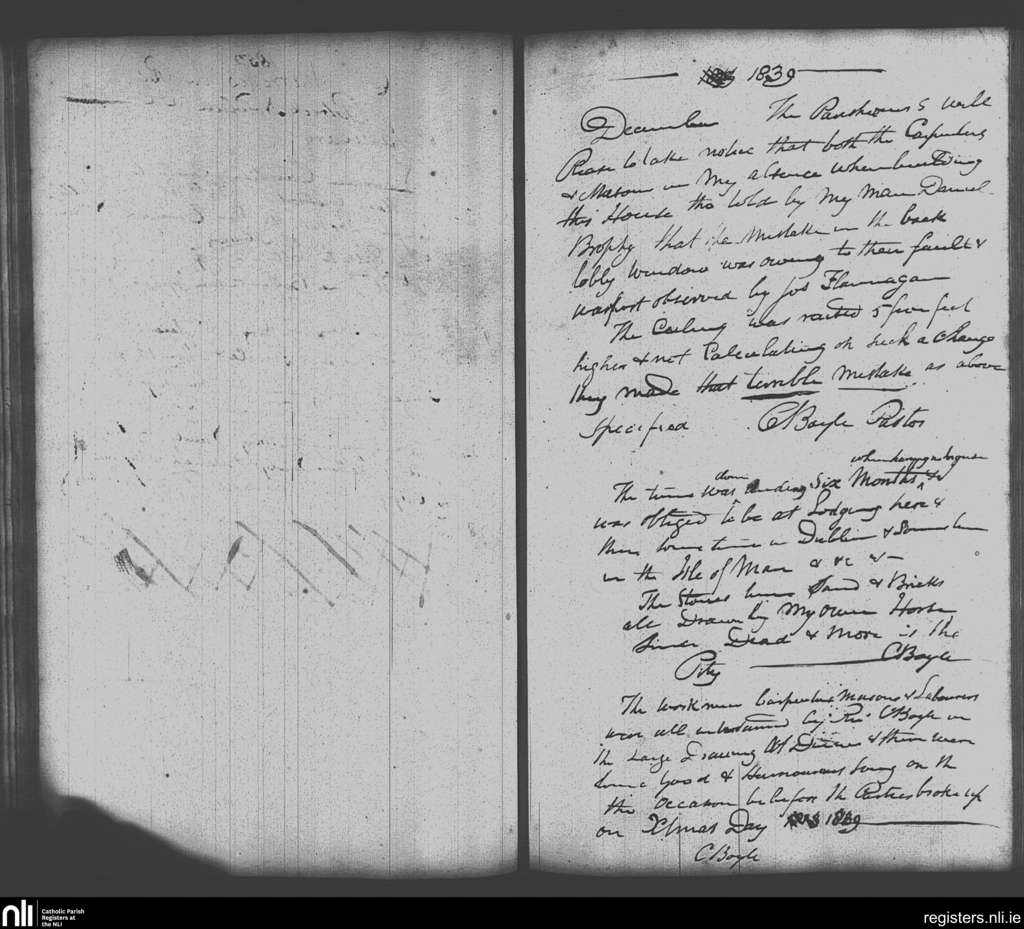 1839
December The Parishioners will
Please to take notice that both the Carpenters
& Mason in My absence when building
this House tho told by My Man Daniel
Brophy that the Mistake in the back
lobby Window was owing to their fault &
was first observed by Jos Flannagan
The Ceiling was raised 5 four feet
higher & not Calculating on such a Change
they made that terrible Mistake as above
Specified C Boyle Pastor
when having no house
down
The time was Six Months &
was obliged to be at Lodging here &
there some time in Dublin & Some time
in the Isle of Man & &c &
The Stones lime Sand & Bricks
all Drawn by My own Horse
Since Dead & More is the
Pity C Boyle
The workmen Carpenters Masons & Labourers
were all entertained by Rev. C Boyle in
the Large Drawing At Dinner & there were
Some Good & Humourous Song on the
the Occasion before the Parties broke up
on Xtmas Day 1839
C Boyle
nli
Catholic Parish
Registers at
the NLI
registers.nli.ie